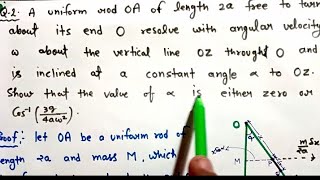 Q.2. A uniform rod OA of length 2a free to turn
about its end O resolve with angular velocity
ω about the vertical line OZ through O and
is inclined at a constant angle α to OZ.
Show that the value of α is either zero or
Cos⁻¹(3g/4aω²).
Proof: let OA be a uniform rod of
length 2a and mass M, which
O
M
P
m/2a δx